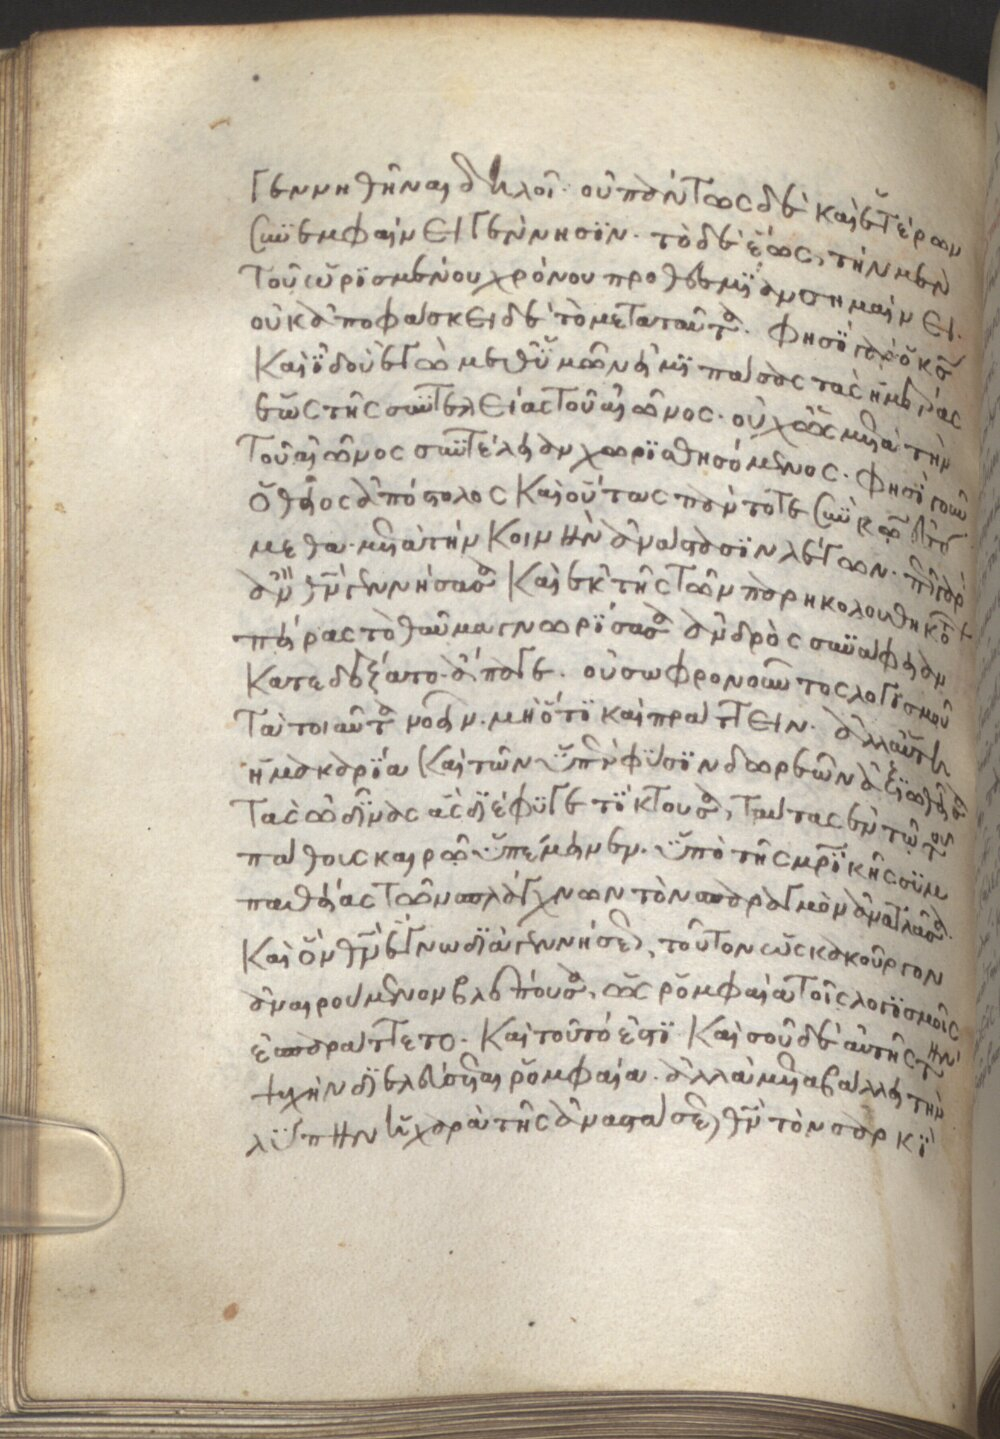 Γεννηθῆναι δηλοῖ· οὐ πάντως δὲ καὶ ἑτέρων
συνεμφαίνει γέννησιν. τὸ δὲ ἕως, τὴν μὲν
τοῦ ὡρισμένου χρόνου προθεσμίαν σημαίνει.
οὐκ ἀποφάσκει δὲ τὸ μετὰ ταῦτα. φησὶ γὰρ ὁ κς
καὶ ἰδοὺ ἐγὼ μεθ' ὑμῶν εἰμι πάσας τὰς ἡμέρας
ἕως τῆς συντελείας τοῦ αἰῶνος. οὐχ ὡς μετὰ τὴν
τοῦ αἰῶνος συντέλειαν χωρισθησόμενος. φησὶ γοῦν
ὁ θεῖος ἀπόστολος καὶ οὕτως πάντοτε σὺν κω ἐσό
μεθα. μετὰ τὴν κοινὴν ἀνάστασιν λέγων. πῶς γὰρ
ἂν θν γεννήσασα καὶ ἐκ τῆς τῶν παρηκολουθηκότ
πείρας τὸ θαῦμα γνωρίσασα ἀνδρὸς συνάφειαν
κατεδέξατο. ἄπαγε. οὐ σωφρονοῦντος λογισμοῦ
τὰ τοιαῦτα νοεῖν. μὴ ὅτι καὶ πράττειν. ἀλλ' αὕτη
ἡ μακαρία καὶ τῶν ὑπὲρ φύσιν δωρεῶν ἀξιωθεῖσα
τὰς ὠδῖνας ἃς διέφυγε τίκτουσα, ταύτας ἐν τῷ τοῦ
πάθους καιρῷ ὑπέμεινεν. ὑπὸ τῆς μρικῆς συμ
παθείας τῶν σπλάγχνων τὸν σπαραγμὸν ἀνατλᾶσα.
καὶ ὃν θν ἔγνω διὰ γεννήσεως, τοῦτον ὡς κακοῦργον
ἀναιρούμενον βλέπουσα, ὡς ῥομφαία τοῖς λογισμοῖς
ἐσπαράττετο. καὶ τοῦτό ἐστι καὶ σοῦ δὲ αὐτῆς τὴν
ψυχὴν διελεύσεται ῥομφαία. ἀλλὰ μεταβάλλει τὴν
λύπην ἡ χαρὰ τῆς ἀναστάσεως θν τὸν σαρκὶ